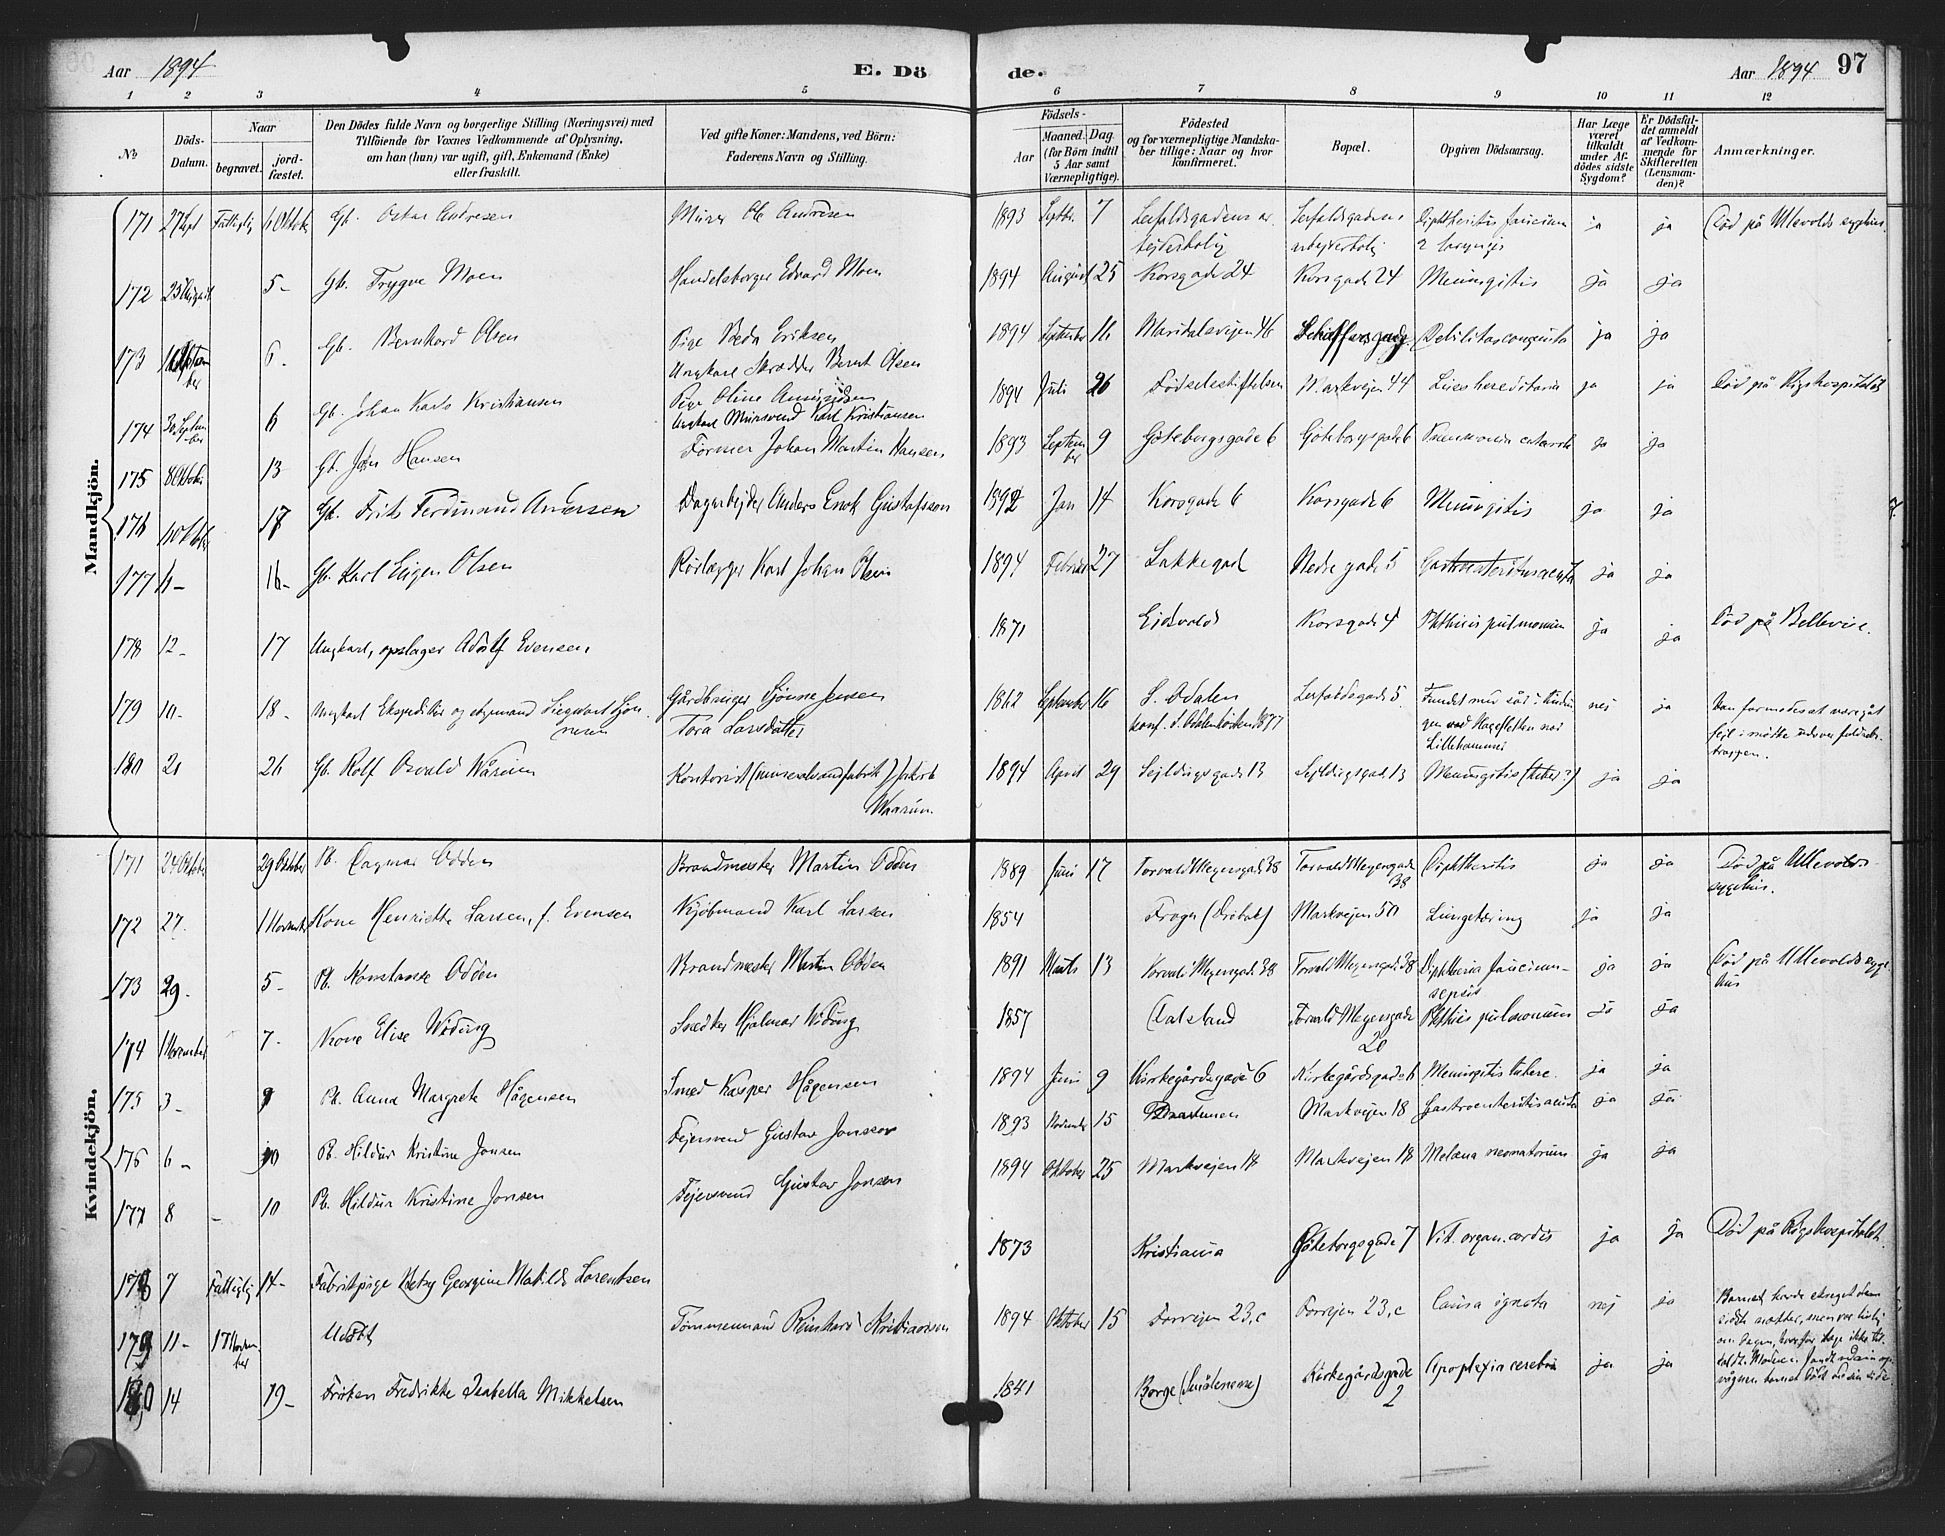 Aar 1894 E. Dö de. Aar 1894 97
1 2 3 4 5 6 7 8 9 10 11 12
No
Döds-
Datum.
Naar
begravet.
jord-
fæstet.
Den Dödes fulde Navn og borgerlige Stilling (Næringsvei) med
Tilföiende for Voxnes Vedkommende af Oplysning,
om han (hun) var ugift, gift, Enkemand (Enke)
eller fraskilt.
Ved gifte Koner: Mandens, ved Börn:
Faderens Navn og Stilling.
Födsels-
Aar
Maaned. Dag.
(for Börn indtil
5 Aar samt
Værnepligtige).
Födested
og for værnepligtige Mandska-
ber tillige: Naar og hvor
konfirmeret.
Bopæl.
Opgiven Dödsaarsag.
Har Læge
været
tilkaldt
under Af-
dödes sidste
Sygdom?
Er Dödsfal-
det anmeldt
af Vedkom-
mende for
Skifteretten
(Lensman-
den)?
Anmærkninger.
Mandkjön.
171 27 Sept Fattiglig 6 Oktob. Gb. Oskar Andresen Murer Ole Andresen 1893 Septbr. 7 Seilduksgadens ar
bejderbolig arbejderbolig Diphtheritis faucium
& laryngis ja ja Död på Ullevolds sygehus.
172 25 August 5 - Gb. Trygve Moen Handelsborger Edvard Moen 1894 August 25 Korsgade 24 Korsgade 24 Meningitis ja ja
173 6. Gb. Bernhard Olsen Pige Beda Eriksen
Ungkarl Skrædder Bernt Olsen 1894 September 16 Maridalsvejen 46 Debilitas congenita ja ja
174 30 Septem
ber 6 Gb. Johan Karlo Kristiansen Pige Oline Amundsen
Ungkarl Murersvend Karl Kristiansen 1894 Juli 26 Födselsstiftelsen Markvejen 44 Lues hereditaria ja ja Död på Rigshospitalet
175 8 Oktober 13 Gb. Jörn Hansen Former Johan Martin Hansen 1893 Septem
ber 9 Göteborgsgade 6 Göteborgsgade 6 Pneumonia catarrh ja ja
176 10 Oktober 17 Gb. Frits Ferdinand Andersen Dagarbejder Anders Enok Gustafsson 1892 Jan 14 Korsgade 6 Korsgade 6 Meningitis ja ja
177 11 - 16 - Gb. Karl Eugen Olsen Rörlægger Karl Johan Olsen 1894 Februar 27 Lakkegad Nedre gade 5 Gastroenteritis acuta ja ja
178 12 - 17 Ungkarl, opslager Adolf Evensen 1871 Eidsvold Korsgade 4 Phthisis pulmonum ja ja Död på Bellevue.
179 10 - 18 - Ungkarl Ekspeditör og Gårdbruger Sjönne Jensen
Tora Larsdatter 1862 September 16 S. Odalen
konf. S. Odalen kirken 1877 Fundet med sår i tindin
gen ved Hageflelten nær
Lillehammer nej ja Den formodes at være gåt
fejl i mörke udover
trappen.
180 21 26 Gb. Rolf Osvald Waarum Kontorist (mineralvandfabrik) Jakob
Waarum. 1894 April 29 Sejldugsgade 13 Sejldugsgade 13 Meningitis (tuber?) ja ja
Kvindekjön.
171 24 Oktober 29 Oktober Pb. Dagmar Odden Brandmester Martin Odden 1889 Juni 17 Torvald Meyersgade 38 Torvald Meyersgade
38 Diphtheritis ja ja Död på Ullevolds
sygehus.
172 27. 1 November Kone Henriette Larsen, f. Evensen Kjöbmand Karl Larsen 1854 Frogn (Dröbak) Markvejen 50 Lungetæring ja ja
173 29. 5 - Pb. Konstanse Odden Brandmester Martin Odden 1891 Marts 13 Torvald Meyersgade 38 Torvald Meyersgade 38 Diphtheria faucium -
sepsis ja ja Död på Ullevolds syge
hus
174 1 November 7 - Kone Elise Widing Snedker Hjalmar Widing 1857 Dalsland Torvald Meyersgade
20 Phthisis pulmonum ja ja
175 3 - 9 Pb. Anna Margrete Hågensen Smed Kasper Hågensen 1894 Juni 9 Kirkegårdsgade 6 Kirkegårdsgade 6 Meningitis tuberc. ja ja
176 6 - 10 Pb. Hildur Kristine Jonsen Fejersvend Gustav Jonsen 1893 November 15 Drammen Markvejen 18 Gastroenteritis acuta ja ja
177 8 - 10 Pb. Hildur Kristine Jonsen Fejersvend Gustav Jonsen 1894 Oktober 25 Markvejen 18 Markvejen 18 Melæna neonatorum ja ja
178 7 Fattiglig 14 - Fabrikpige Betsy Georgine Matilde Lorentsen 1873 Kristiania Göteborgsgade 7 Vit. organ. cordis ja ja Död på Rigshospitalet.
179 11 - 17 Novem
ber Udöbt Tömmermand Reinhard Kristiansen 1894 Oktober 15 Torvejen 23, c Torvejen 23, c Causa ignota nej ja Barnet havde skreget den
sidste nætter, men var livlig
om dagen, hvorfor læge ikke til
kaldt. Moderen fandt
barnet dödt ved sin side.
180 14 19 - Fröken Fredrikke Isabella Mikkelsen 1841 Borge (Smålenene) Kirkegårdsgade
2 Apoplexia cerebri ja ja